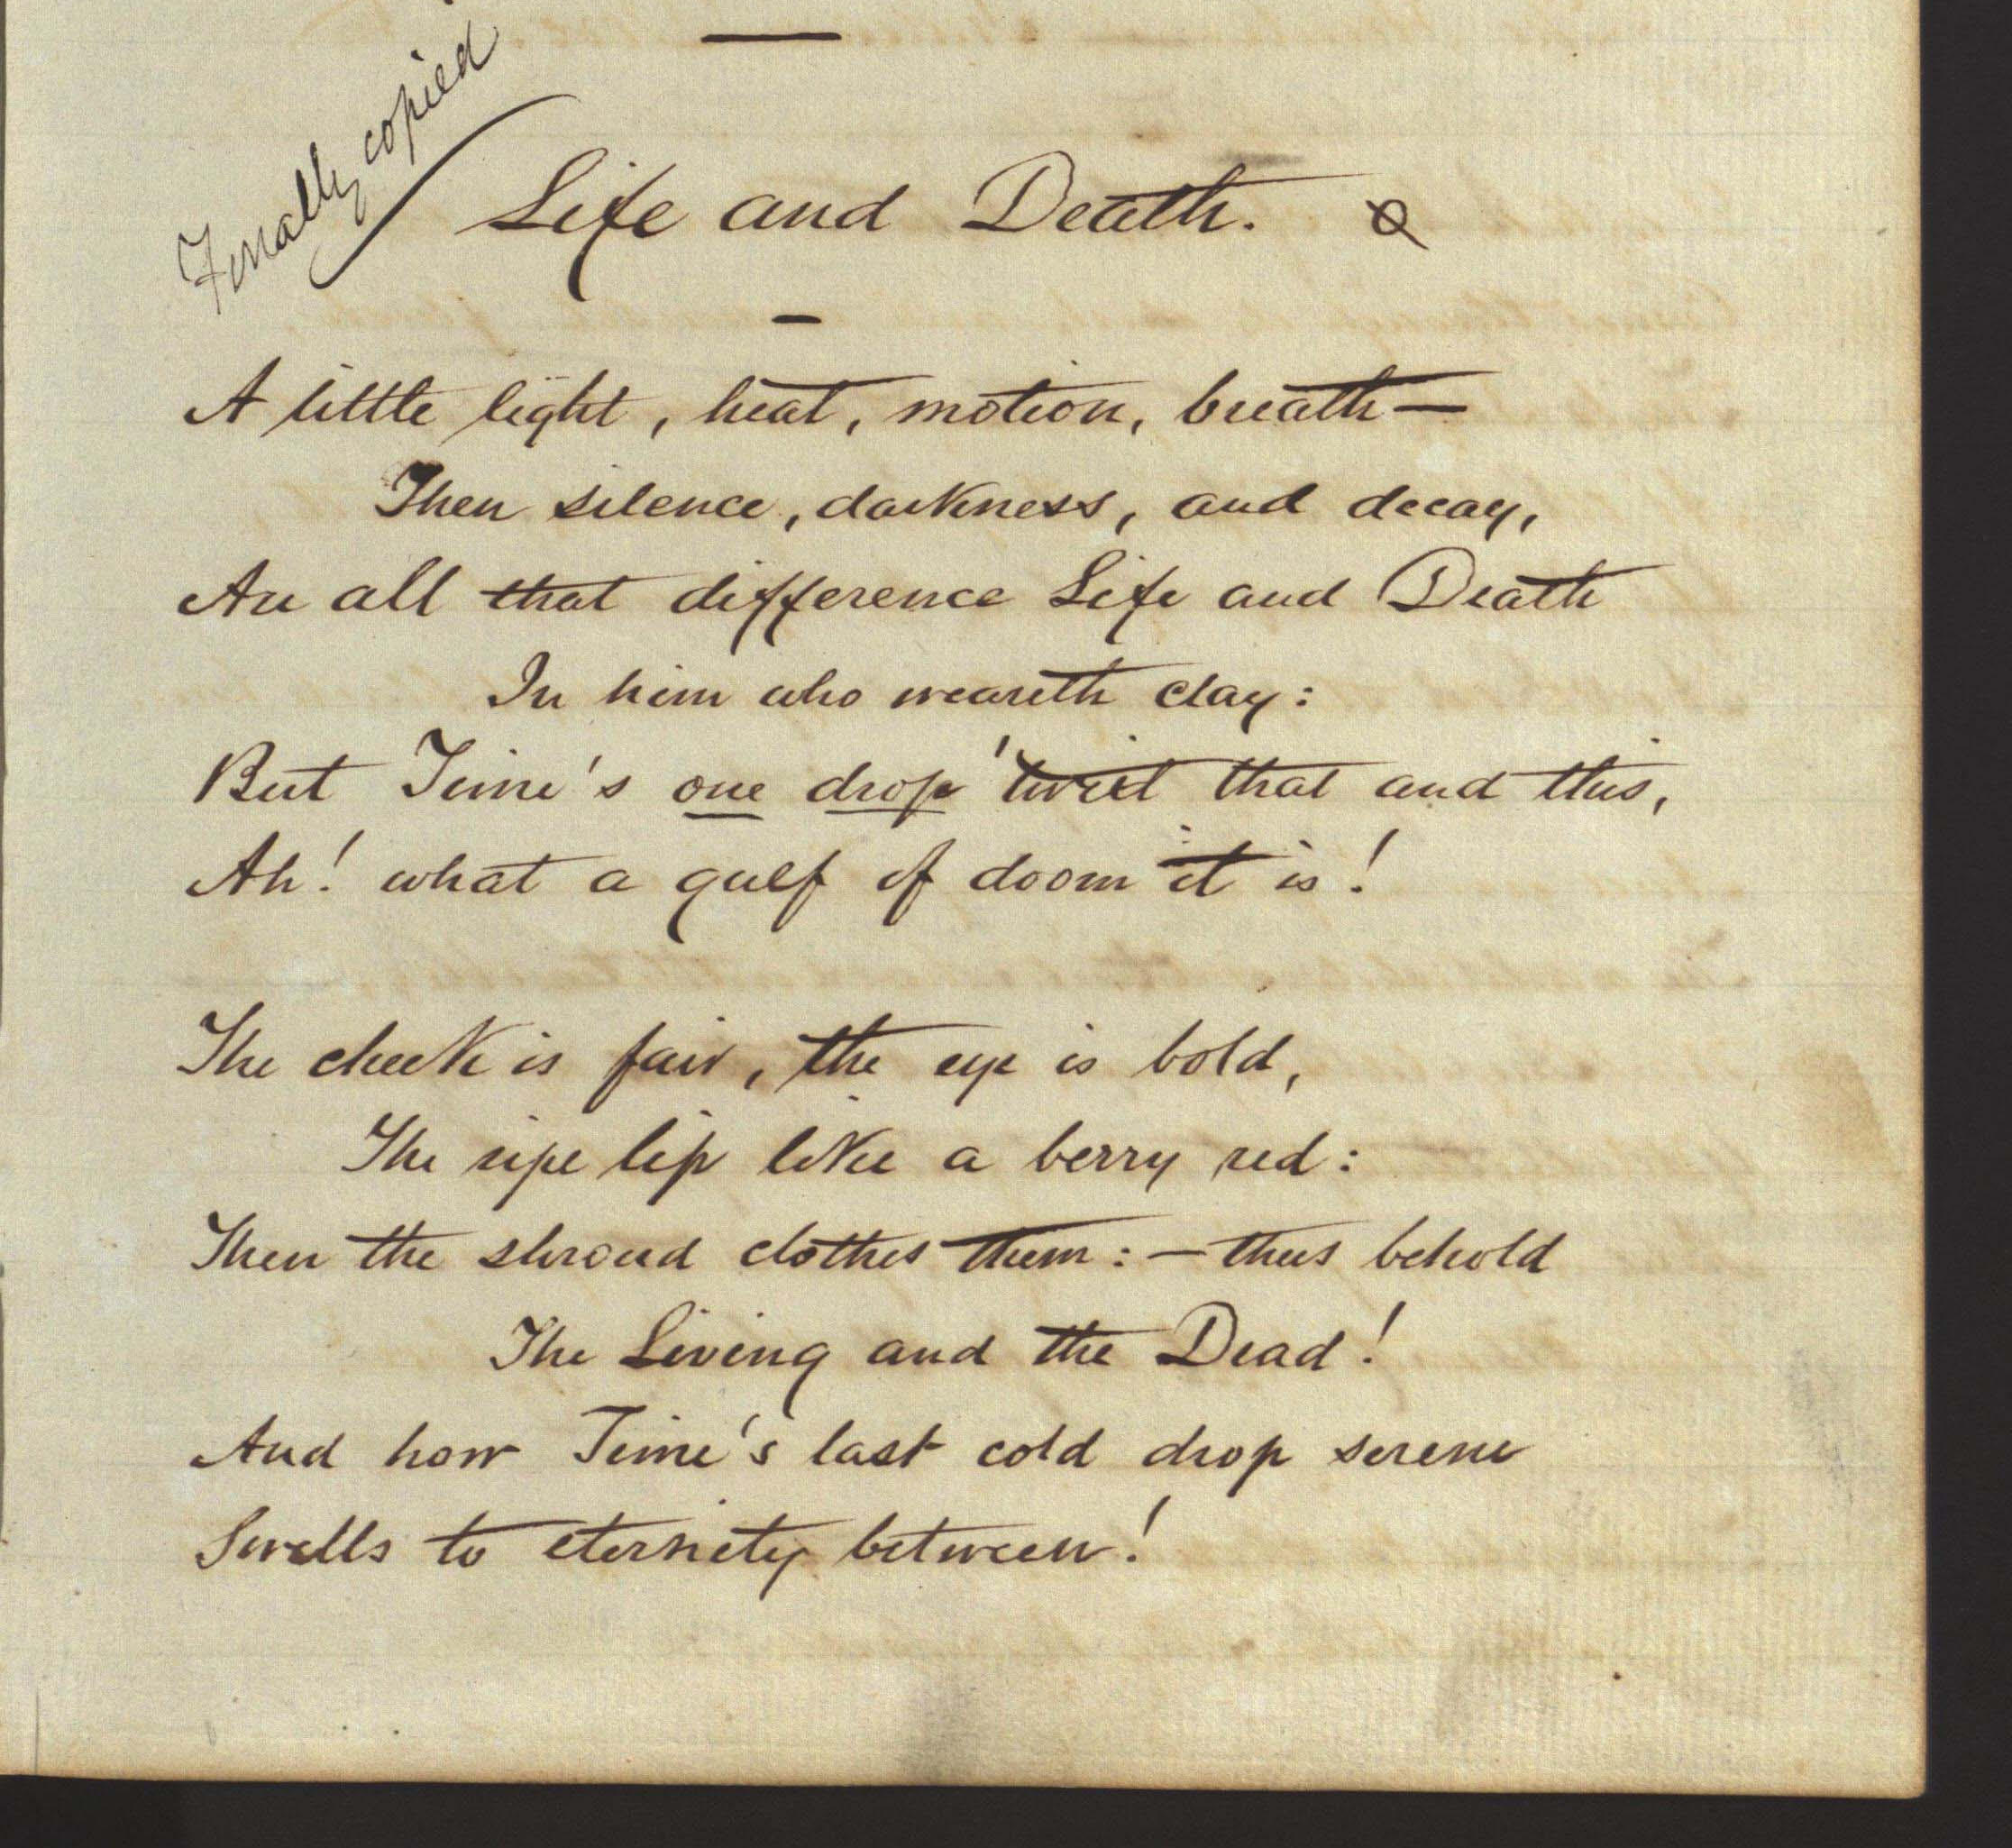 Finally copied
Life and Death.
A little light, heat, motion, breath—
Then silence, darkness, and decay,
Are all that difference Life and Death
In him who weareth clay:
But Time's one drop 'twixt that and this,
Ah! what a gulf of doom it is!
The cheek is fair, the eye is bold,
The ripe lip like a berry red:
Then the shroud clothes them:—thus behold
The Living and the Dead!
And how Time's last cold drop serene
Swells to eternity between!